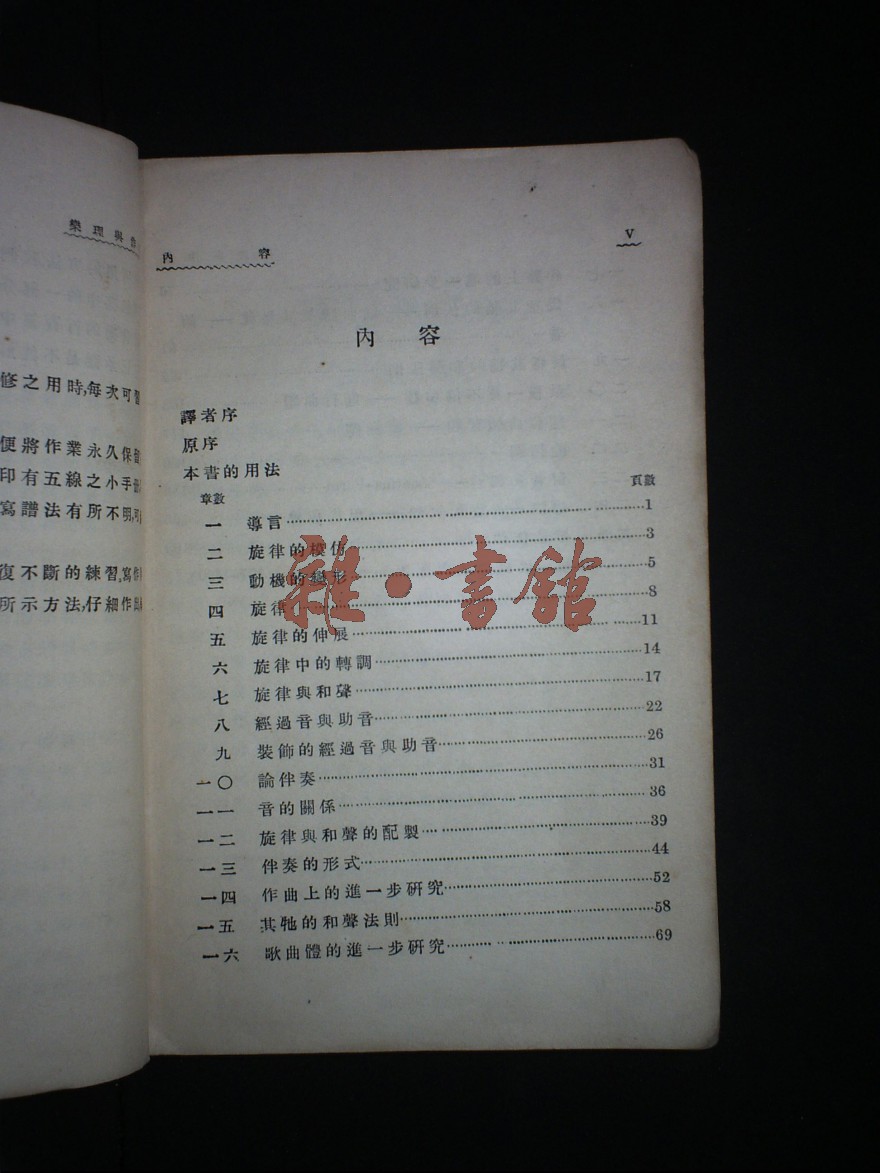 樂理與作
修之用時,每次可
便將作業永久保
印有五線之小手
寫譜法有所不明,可
復不斷的練習,寫作
所示方法,仔細作出
內容
V
內容
譯者序
原序
本書的用法
章數 頁數
一 導言 1
二 旋律的模仿 3
三 動機的變形 5
四 旋律 8
五 旋律的伸展 11
六 旋律中的轉調 14
七 旋律與和聲 17
八 經過音與助音 22
九 裝飾的經過音與助音 26
一〇 論伴奏 31
一一 音的關係 36
一二 旋律與和聲的配製 39
一三 伴奏的形式 44
一四 作曲上的進一步研究 52
一五 其牠的和聲法則 58
一六 歌曲體的進一步研究 69
雜·書館